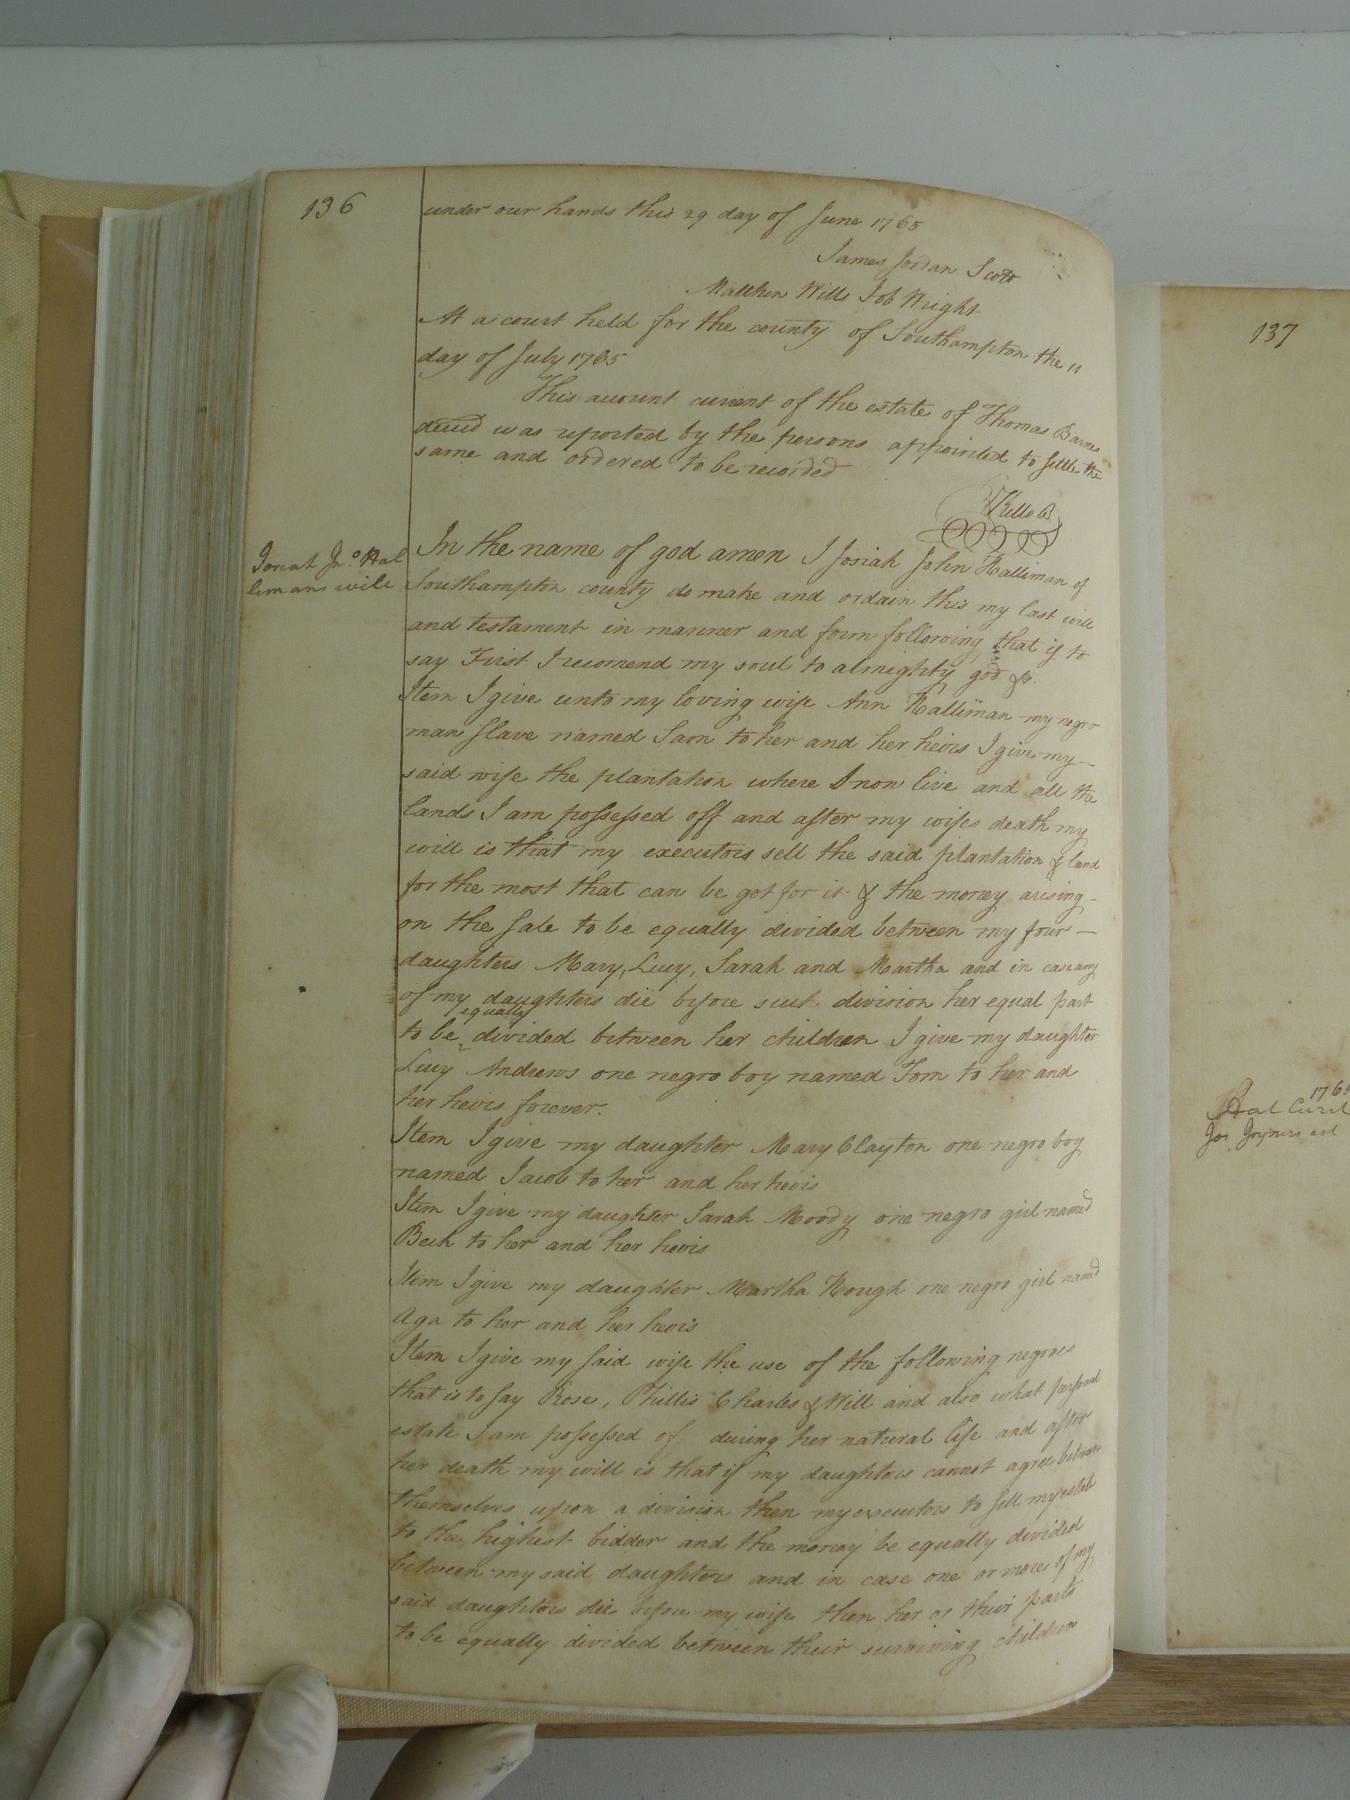 136
under our hands this 29 day of June 1765
James Jordan Scott
Matthew Wills Job Wright
At a court held for the county of Southampton the 11
day of July 1765
This account current of the estate of Thomas Barnes
decēd was reported by the persons appointed to settle the
same and ordered to be recorded
In the name of god amen I Josiah John Halliman of
Southampton county do make and ordain this my last will
and testament in manner and form following that is to
say First I recomend my soul to almighty god &c.
Item I give unto my loving wife Ann Halliman my negro
man slave named Sam to her and her heirs I give my
said wife the plantation where I now live and all the
lands I am possessed off and after my wifes death my
will is that my executors sell the said plantation & land
for the most that can be got for it & the money arising
on the sale to be equally divided between my four
daughters Mary, Lucy, Sarah and Martha and in case any
of my daughters die before such division her equal part
to be ^equally divided between her children I give my daughter
Lucy Andrews one negro boy named Tom to her and
her heirs forever.
Item I give my daughter Mary Clayton one negro boy
named Jacob to her and her heirs
Item I give my daughter Sarah Moody one negro girl named
Beck to her and her heirs
Item I give my daughter Martha Hough one negro girl named
Aga to her and her heirs
Item I give my said wife the use of the following negroes
that is to say Rose, Phillis Charles & Will and also what personal
estate I am possessed of during her natural life and after
her death my will is that if my daughters cannot agree between
themselves upon a division then my executors to sell my estate
to the highest bidder and the money be equally divided
between my said daughters and in case one or more of my
said daughters die before my wife then her or their parts
to be equally divided between their surviving children
Jno. Hal
limans will
137
1765
Jos Joyners est